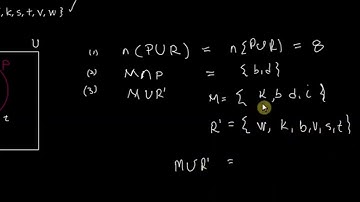 , k, s, t, v, w } ✓
U
P
(1) n(PUR) = n{PUR} = 8
(2) M∩P = {b,d}
(3) MUR' M = { k, b d, i {
R' = { w, k, b, v, s, t }
MUR' =